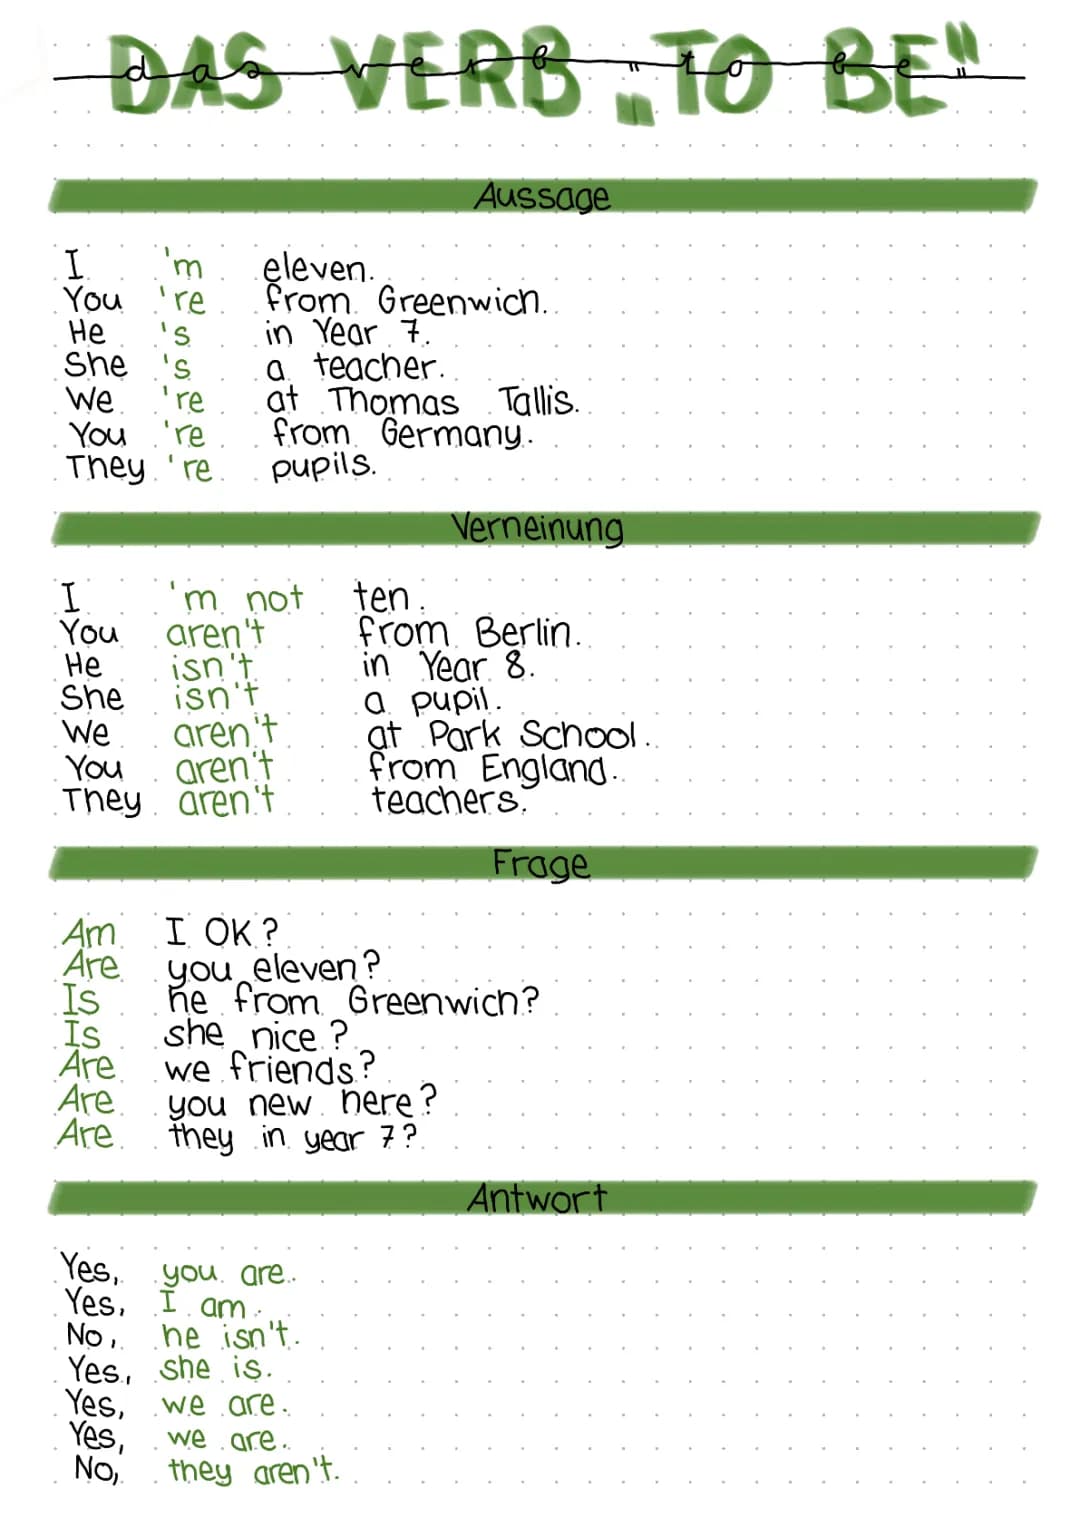 DAS VERB „TO BE"
das verb "to be"
Aussage
I 'm eleven.
You 're from Greenwich.
He 's in Year 7.
She 's a teacher.
We 're at Thomas Tallis.
You 're from Germany.
They 're pupils.
Verneinung
I 'm not ten.
You aren't from Berlin.
He isn't in Year 8.
She isn't a pupil.
We aren't at Park School.
You aren't from England.
They aren't teachers.
Frage
Am I OK?
Are you eleven?
Is he from Greenwich?
Is she nice?
Are we friends?
Are you new here?
Are they in year 7?
Antwort
Yes, you are.
Yes, I am.
No, he isn't.
Yes, she is.
Yes, we are.
Yes, we are.
No, they aren't.